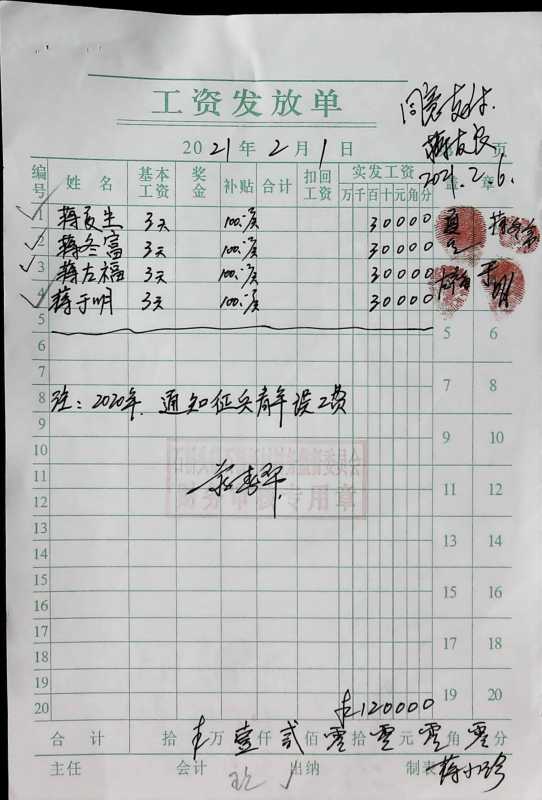 工资发放单
同意支付.
2021年2月1日
页
2021.2.6.
编号 姓名 基本工资 奖金 补贴 合计 扣回工资 实发工资 万千百十元角分 盖章
1 蒋友生 3天 100.-/天 30000
2 蒋冬富 3天 100.-/天 30000
3 蒋左福 3天 100.-/天 30000
4 蒋于明 3天 100.-/天 30000
5 5 6
6
7 7 8
8 注:2020年.通知征兵青年误工费
9 9 10
10
11 11 12
12
13 13 14
14
15 15 16
16
17 17 18
18
19 19 20
20 120000
合计 拾 万壹仟贰佰零拾零元零角零分
主任 会计 出纳 制表